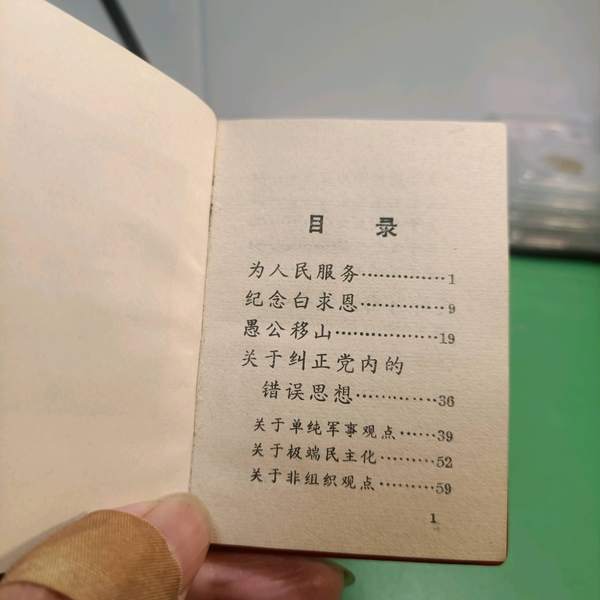 目录
为人民服务……………1
纪念白求恩……………9
愚公移山………………19
关于纠正党内的
错误思想……………36
关于单纯军事观点……39
关于极端民主化………52
关于非组织观点………59
1